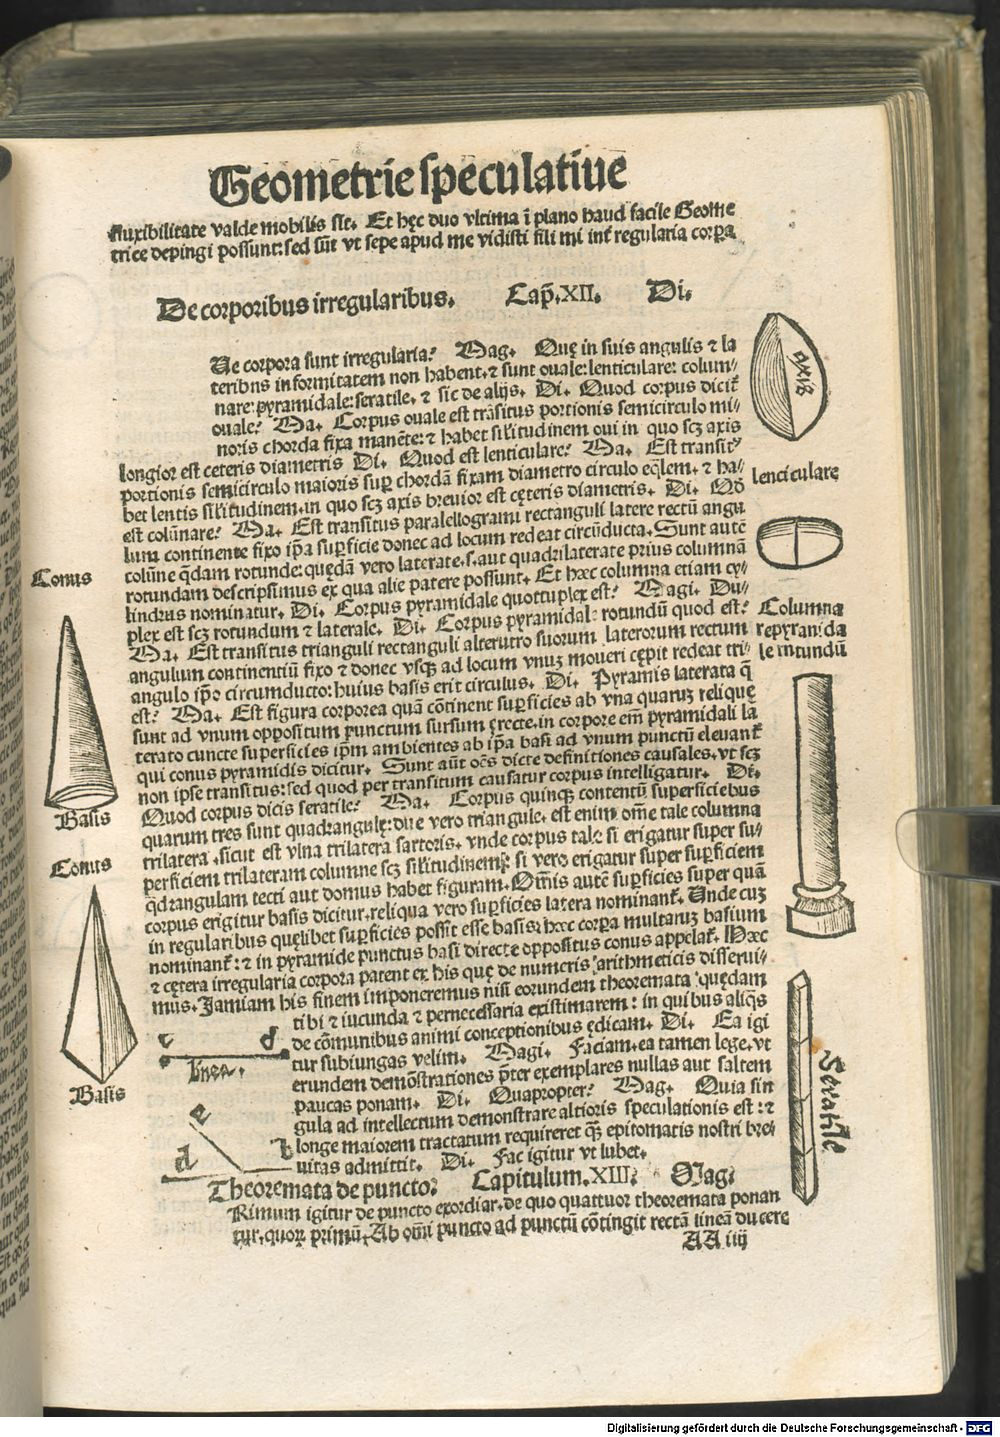 Geometrie speculatiue
fluxibilitate valde mobilis sit. Et hęc duo vltima ī plano haud facile Geome
trice depingi possunt: sed sūt vt sepe apud me vidisti fili mi int̄ regularia corpa
De corporibus irregularibus. Cap̄.XII. Di.
Ue corpora sunt irregularia? Mag. Quę in suis angulis ⁊ la
teribus informitatem non habent, ⁊ sunt ouale: lenticulare: colum⸗
nare: pyramidale: seratile, ⁊ sic de alijs. Di. Quod corpus dicit̄
ouale? Ma. Corpus ouale est trāsitus portionis semicirculo mi⸗
noris chorda fixa manēte: ⁊ habet sił'itudinem oui in quo scꝫ axis
longior est ceteris diametris Di. Quod est lenticulare? Ma. Est transitꝰ
portionis semicirculo maioris sup̱ chordā fixam diametro circulo eq̄lem. ⁊ ha⸗
bet lentis sił'itudinem, in quo scꝫ axis breuior est cęteris diametris. Di. Qđ
est colūnare? Ma. Est transitus paralellogrami rectanguli latere rectū angu
lum continente fixo ip̄a sup̱ficie donec ad locum redeat circūducta. Sunt autē
colūne q̄dam rotunde: quędā vero laterate. s. aut quadrilaterate prius columnā
rotundam descripsimus ex qua alie patere possunt. Et hæc columna etiam cy⸗
lindrus nominatur. Di. Corpus pyramidale quottuplex est? Magi. Du⸗
plex est scꝫ rotundum ⁊ laterale. Di. Corpus pyramidale rotundū quod est?
Ma. Est transitus trianguli rectanguli alterutro suorum laterorum rectum
angulum continentiū fixo ⁊ donec vsqꝫ ad locum vnuꝫ moueri cępit redeat tri⸗
angulo ip̄o circumducto: huius basis erit circulus. Di. Pyramis laterata q̄
est? Ma. Est figura corporea quā cōtinent sup̱ficies ab vna quaruꝫ reliquę
sunt ad vnum oppositum punctum sursum ęrecte. in corpore em̄ pyramidali la
terato cuncte superficies ip̄m ambientes ab ip̄a basi ad vnum punctū eleuant̄
qui conus pyramidis dicitur. Sunt aūt oēs dicte definitiones causales. vt scꝫ
non ipse transitus: sed quod per transitum causatur corpus intelligatur. Di.
Quod corpus dicis seratile? Ma. Corpus quinqꝫ contentū superficiebus
quarum tres sunt quadrangulę: due vero triangule. est enim om̄e tale columna
trilatera, sicut est vlna trilatera sartoris. vnde corpus tale si erigatur super su⸗
perficiem trilateram columne scꝫ sił'itudinem: si vero erigatur super sup̱ficiem
q̄drangulam tecti aut domus habet figuram. Om̄is autē sup̱ficies super quā
corpus erigitur basis dicitur, reliqua vero sup̱ficies latera nominant̄. Unde cuꝫ
in regularibus quęlibet sup̱ficies possit esse basis: hæc corpa multaruꝫ basium
nominant̄: ⁊ in pyramide punctus basi directe oppositus conus appelat̄. Hæc
⁊ cętera irregularia corpora patent ex his quę de numeris arithmeticis disserui⸗
mus. Jamiam his finem imponeremus nisi eorundem theoremata quędam
tibi ⁊ iucunda ⁊ pernecessaria existimarem: in quibus aliq̄s
de cōmunibus animi conceptionibus ędicam. Di. Ea igi
tur subiungas velim. Magi. Faciam. ea tamen lege, vt
erundem demōstrationes p̄ter exemplares nullas aut saltem
paucas ponam. Di. Quapropter? Mag. Quia sin
gula ad intellectum demonstrare altioris speculationis est: ⁊
longe maiorem tractatum requireret q̄ꝫ epitomatis nostri bre⸗
uitas admittit. Di. Fac igitur vt lubet.
Theoremata de puncto: Capitulum.XIII. Mag:
Rimum igitur de puncto exordiar. de quo quattuor theoremata ponan
tur. quoꝝ primū. Ab om̄i puncto ad punctū cōtingit rectā lineā ducere
AA iiij
axis
lenticulare
Columna
repyramida
le rotundū
Seratile
Conus
Basis
Conus
Basis
c d
linea.
e
d b
Digitalisierung gefördert durch die Deutsche Forschungsgemeinschaft - DFG